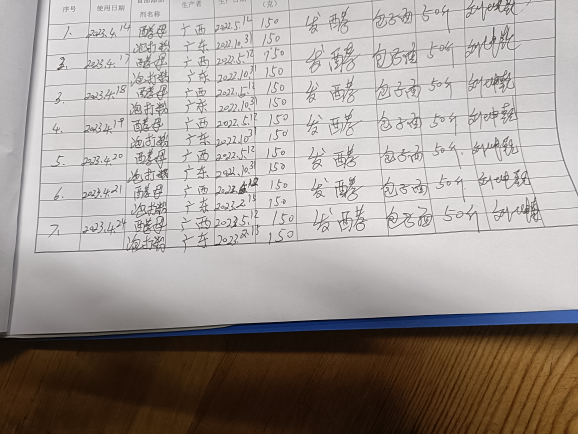 序号 使用日期 剂名称 生产者 生产日期 (克)
1. 2023.4.14 酵母 广西 2022.5.12 150 发酵 包子面 50斤
泡打粉 广东 2022.10.31 150
2. 2023.4.17 酵母 广西 2022.5.12 150 发酵 包子面 50斤
泡打粉 广东 2022.10.31 150
3. 2023.4.18 酵母 广西 2022.5.12 150 发酵 包子面 50斤
泡打粉 广东 2022.10.31 150
4. 2023.4.19 酵母 广西 2022.5.12 150 发酵 包子面 50斤
泡打粉 广东 2022.10.31 150
5. 2023.4.20 酵母 广西 2022.5.12 150 发酵 包子面 50斤
泡打粉 广东 2022.10.31 150
6. 2023.4.21 酵母 广西 150 发酵 包子面 50斤
泡打粉 广东 2023.2.15 150
7. 2023.4.24 酵母 广西 2023.5.12 150 发酵 包子面 50斤
泡打粉 广东 2023.2.15 150